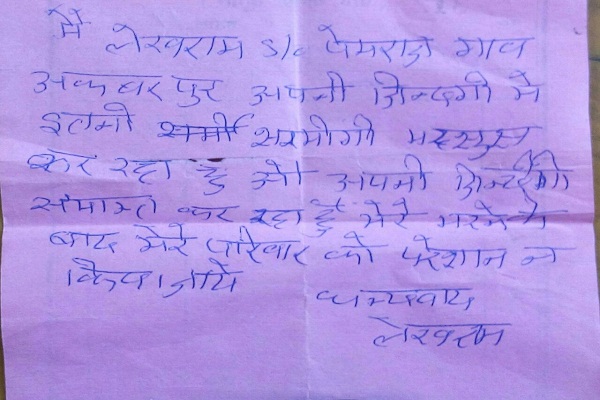 मैं लेखराम S/o प्रेमराज गाव
अकबरपुर अपनी जिन्दगी मे
इतनी शर्मी शरमीगी महसुस
कर रहा हुँ मे अपनी जिन्दगी
समाप्त कर रहा हुँ मेरे मरने के
बाद मेरे परिवार को परेशान न
किया जाये
धन्यवाद
लेखराम